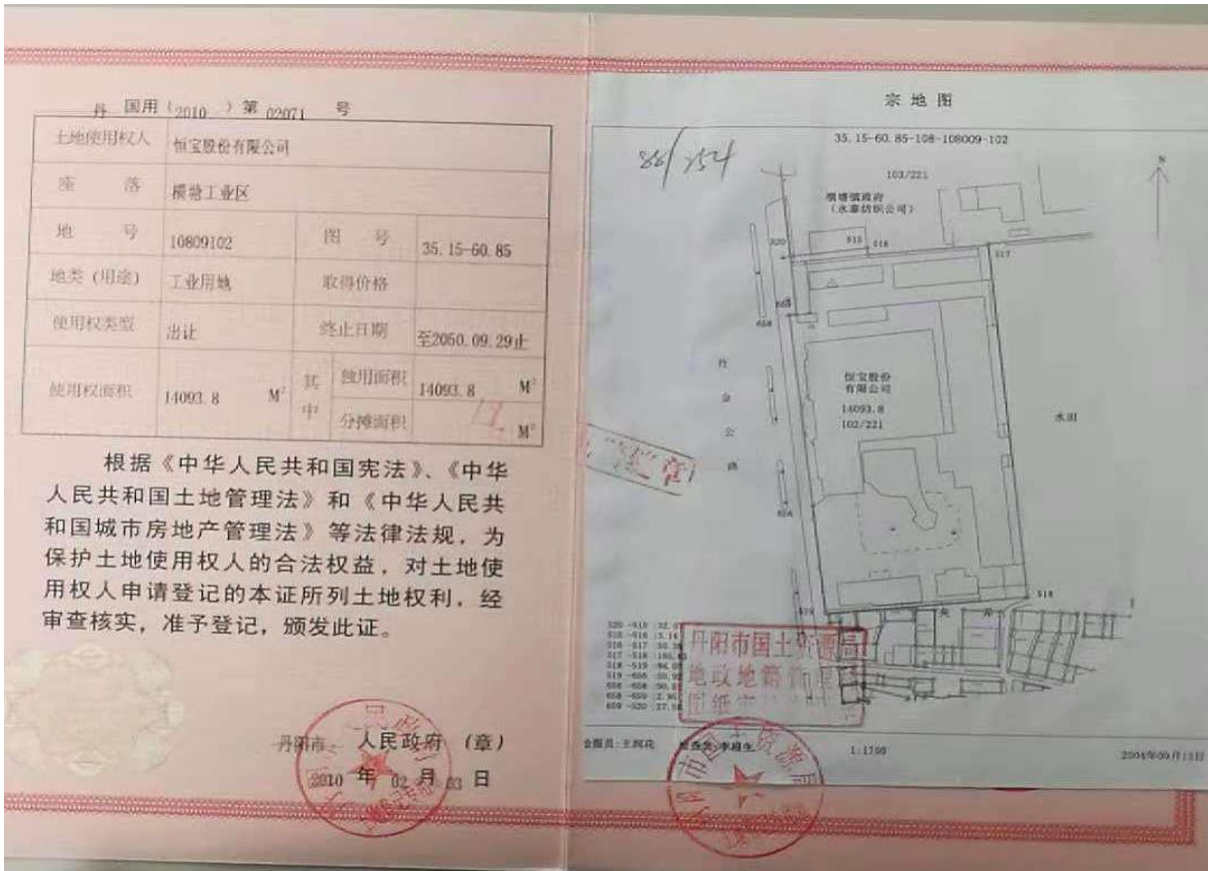 丹 国用(2010)第 02071 号
土地使用权人 恒宝股份有限公司
座 落 横塘工业区
地 号 10809102 图 号 35.15-60.85
地类(用途) 工业用地 取得价格
使用权类型 出让 终止日期 至2050.09.29止
使用权面积 14093.8 M² 其中 独用面积 14093.8 M²
分摊面积 M²
根据《中华人民共和国宪法》、《中华
人民共和国土地管理法》和《中华人民共
和国城市房地产管理法》等法律法规,为
保护土地使用权人的合法权益,对土地使
用权人申请登记的本证所列土地权利,经
审查核实,准予登记,颁发此证。
丹阳市 人民政府 (章)
2010 年 02 月 03 日
宗 地 图
35.15-60.85-108-108009-102
103/221
横塘镇政府
N
520
515
516
517
658
恒宝股份
有限公司
14093.8
102/221
丹
金
公
路
水田
518
丹阳市国土资源局
地政地籍管理
1:1700
2004年09月13日